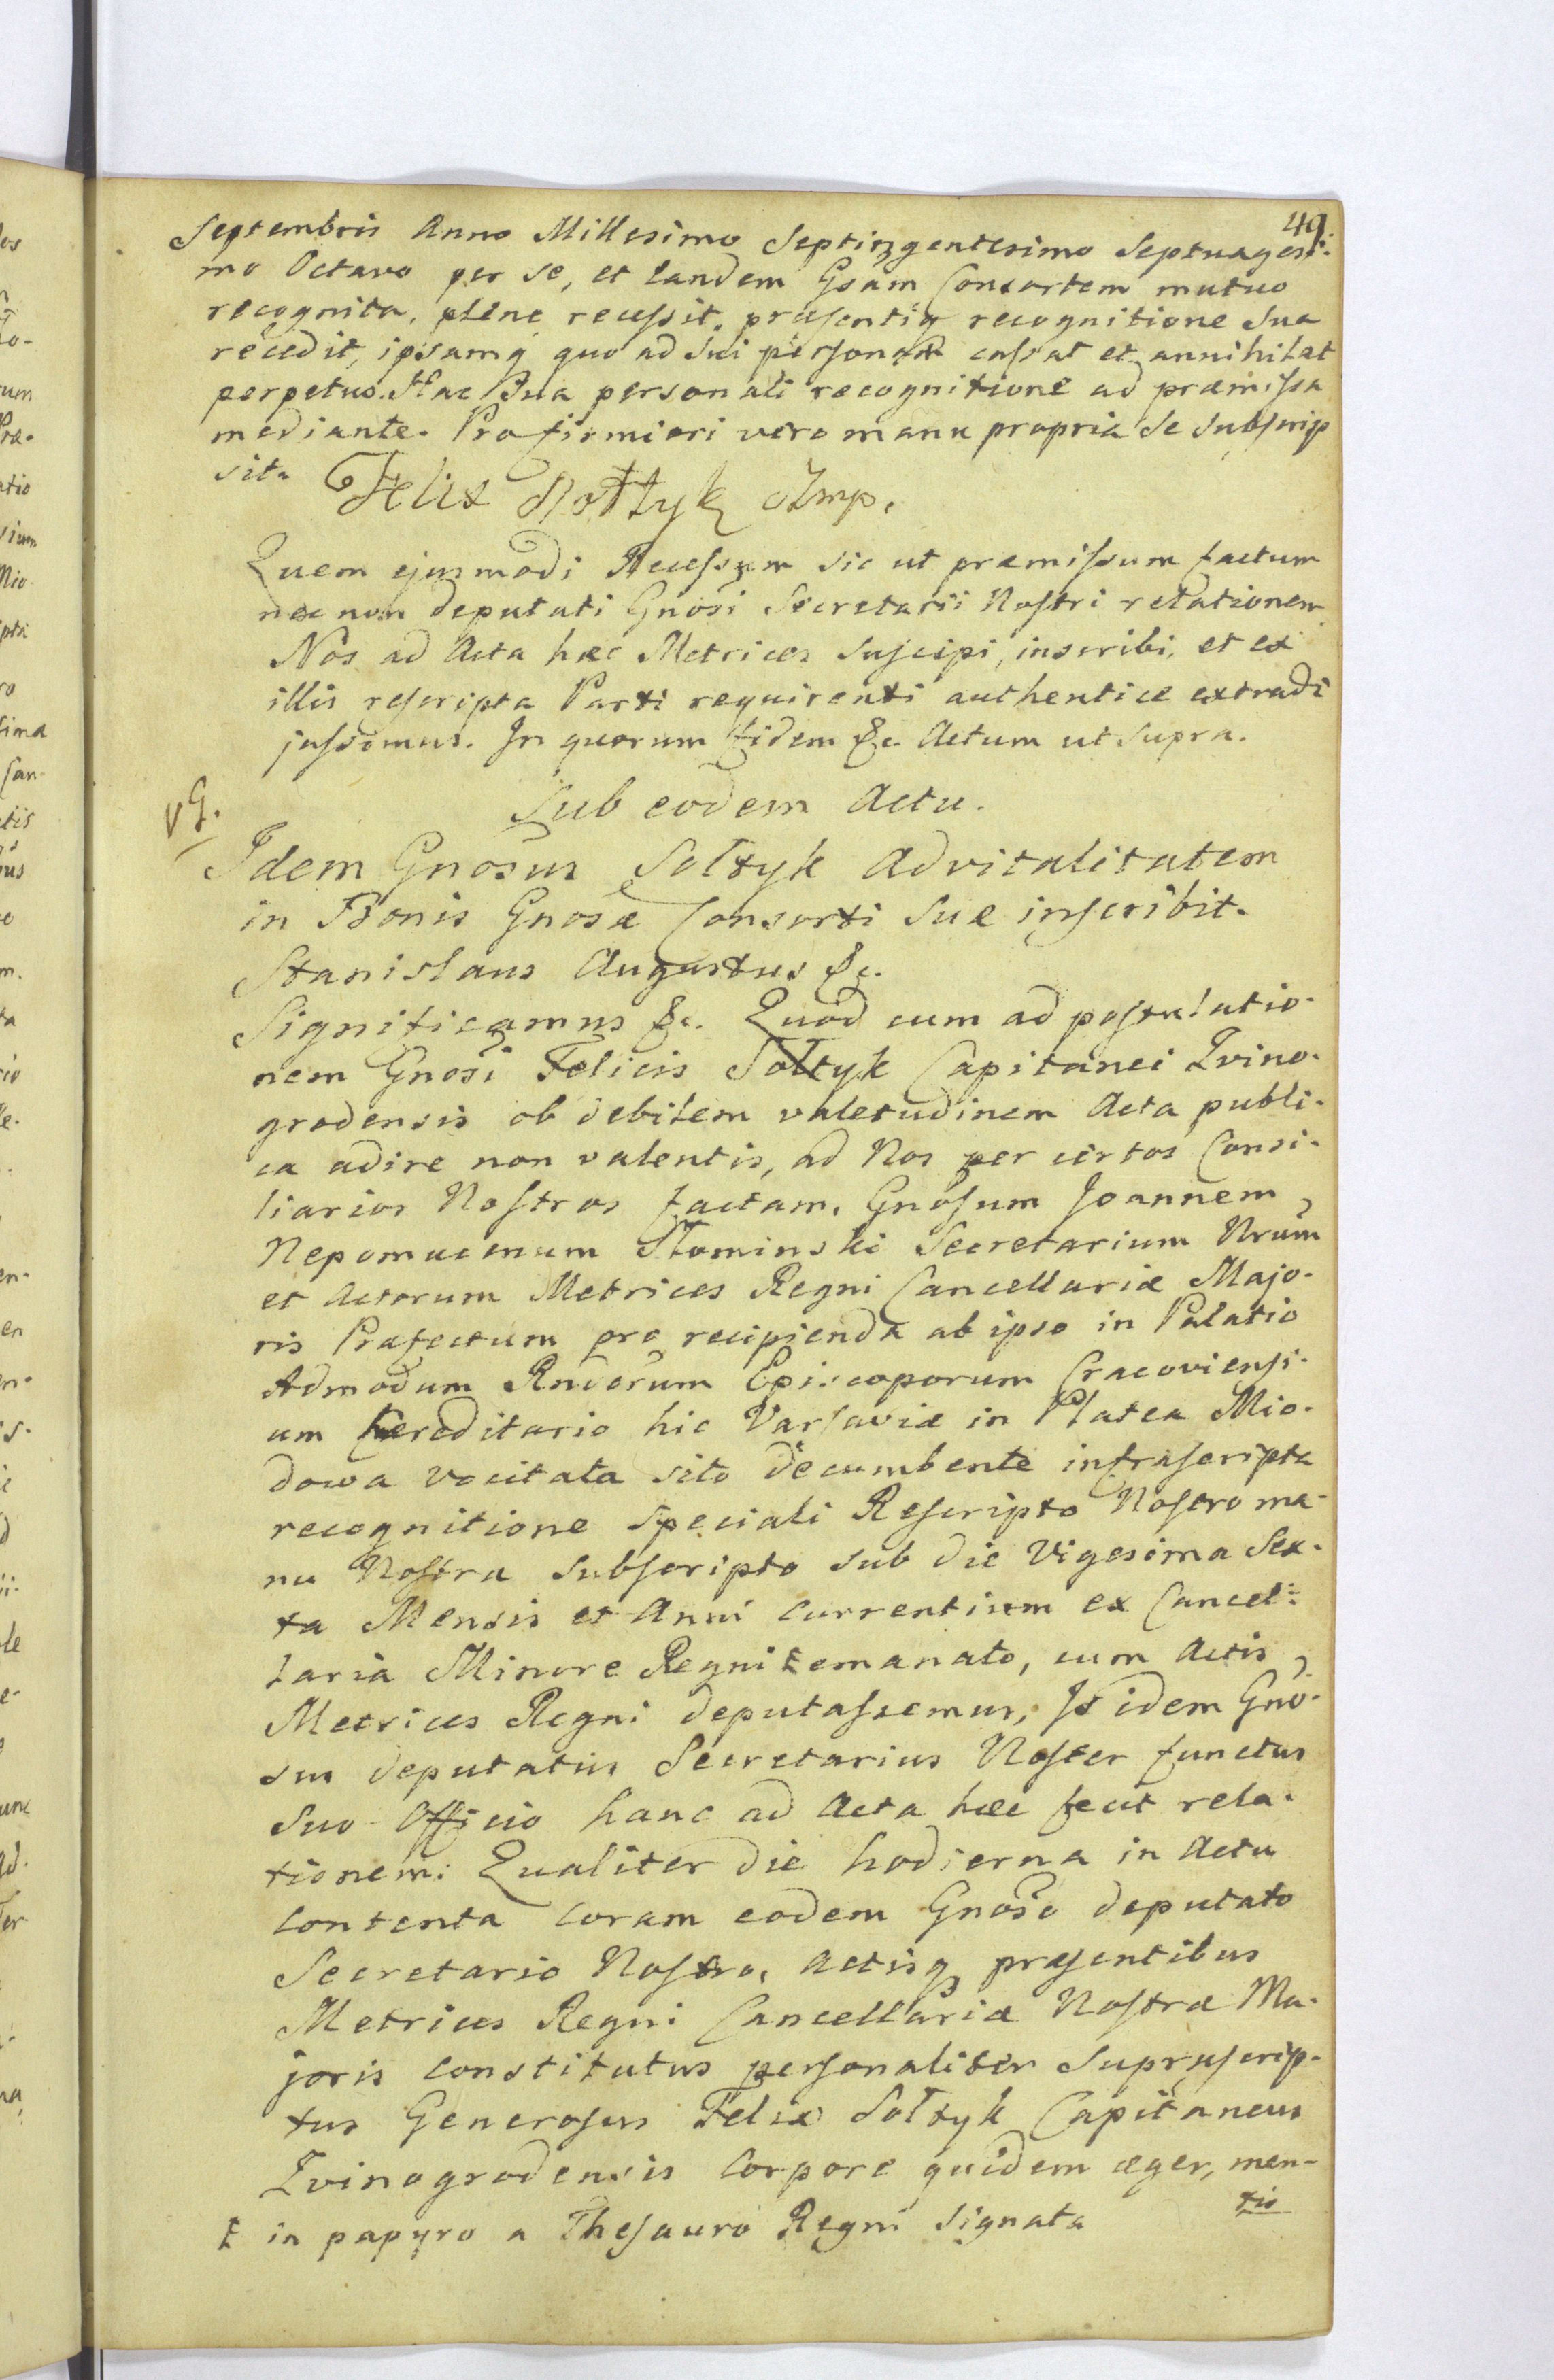 49.
Septembris Anno Millesimo Septingentesimo Septuagesi:
mo Octavo per se, et eandem Gsam Consortem mutuo
recognita, plene recessit, præsentiq recognitione sua
recedit, ipsamq quo ad sui personam cassat et annihilat
perpetuo. Hac Sua personali recognitione ad præmissa
mediante. Pro firmiori vero manu propria se subscrip
sit.
Felix Sołtyk mp.
Quem ejusmodi Recessum sic ut præmissum factum
nec non deputati Gnosi Secretarii Nostri relationem
Nos ad Acta hæc Metrices suscipi, inscribi, et ex
illis rescripta Parti requirenti authentice extradi
jussimus. In quorum fidem &c. Actum ut supra.
Sub eodem Actu.
vG.
Idem Gnosus Sołtyk Advitalitatem
in Bonis Gnosæ Consorti suæ inscribit.
Stanislaus Augustus &c.
Significamus &c. Quod cum ad postulatio-
nem Gnosi Felicis Sołtyk Capitanei Zvino-
grodensis ob debilem valetudinem Acta publi-
ca adire non valentis, ad Nos per certos Consi-
liarios Nostros factam, Gnosum Joannem
Nepomucenum Słominski Secretarium Nrum
et Actorum Metrices Regni Cancellariæ Majo-
ris Præfectum pro recipienda ab ipso in Palatio
Admodum Rndorum Episcoporum Cracoviensi-
um hæreditario hic Varsaviæ in Platea Mio-
dowa vocitata sito decumbente infrascripta
recognitione speciali Rescripto Nostro ma-
nu Nostra subscripto sub die Vigesima Sex-
ta Mensis et Anni currentium ex Cancel-
laria Minore Regni ‡ emanato, cum Actis
Metrices Regni deputassemus, Is idem Gno-
sus deputatus Secretarius Noster functus
suo Officio hanc ad Acta hæc fecit rela-
tionem: Qualiter die hodierna in Actu
contenta coram eodem Gnoso deputato
Secretario Nostro, Actisq præsentibus
Metrices Regni Cancellariæ Nostræ Ma-
joris constitutus personaliter suprascrip-
tus Generosus Felix Sołtyk Capitaneus
Zvinogrodensis corpore quidem æger, men-
tis
‡ in papyro a Thesauro Regni signata